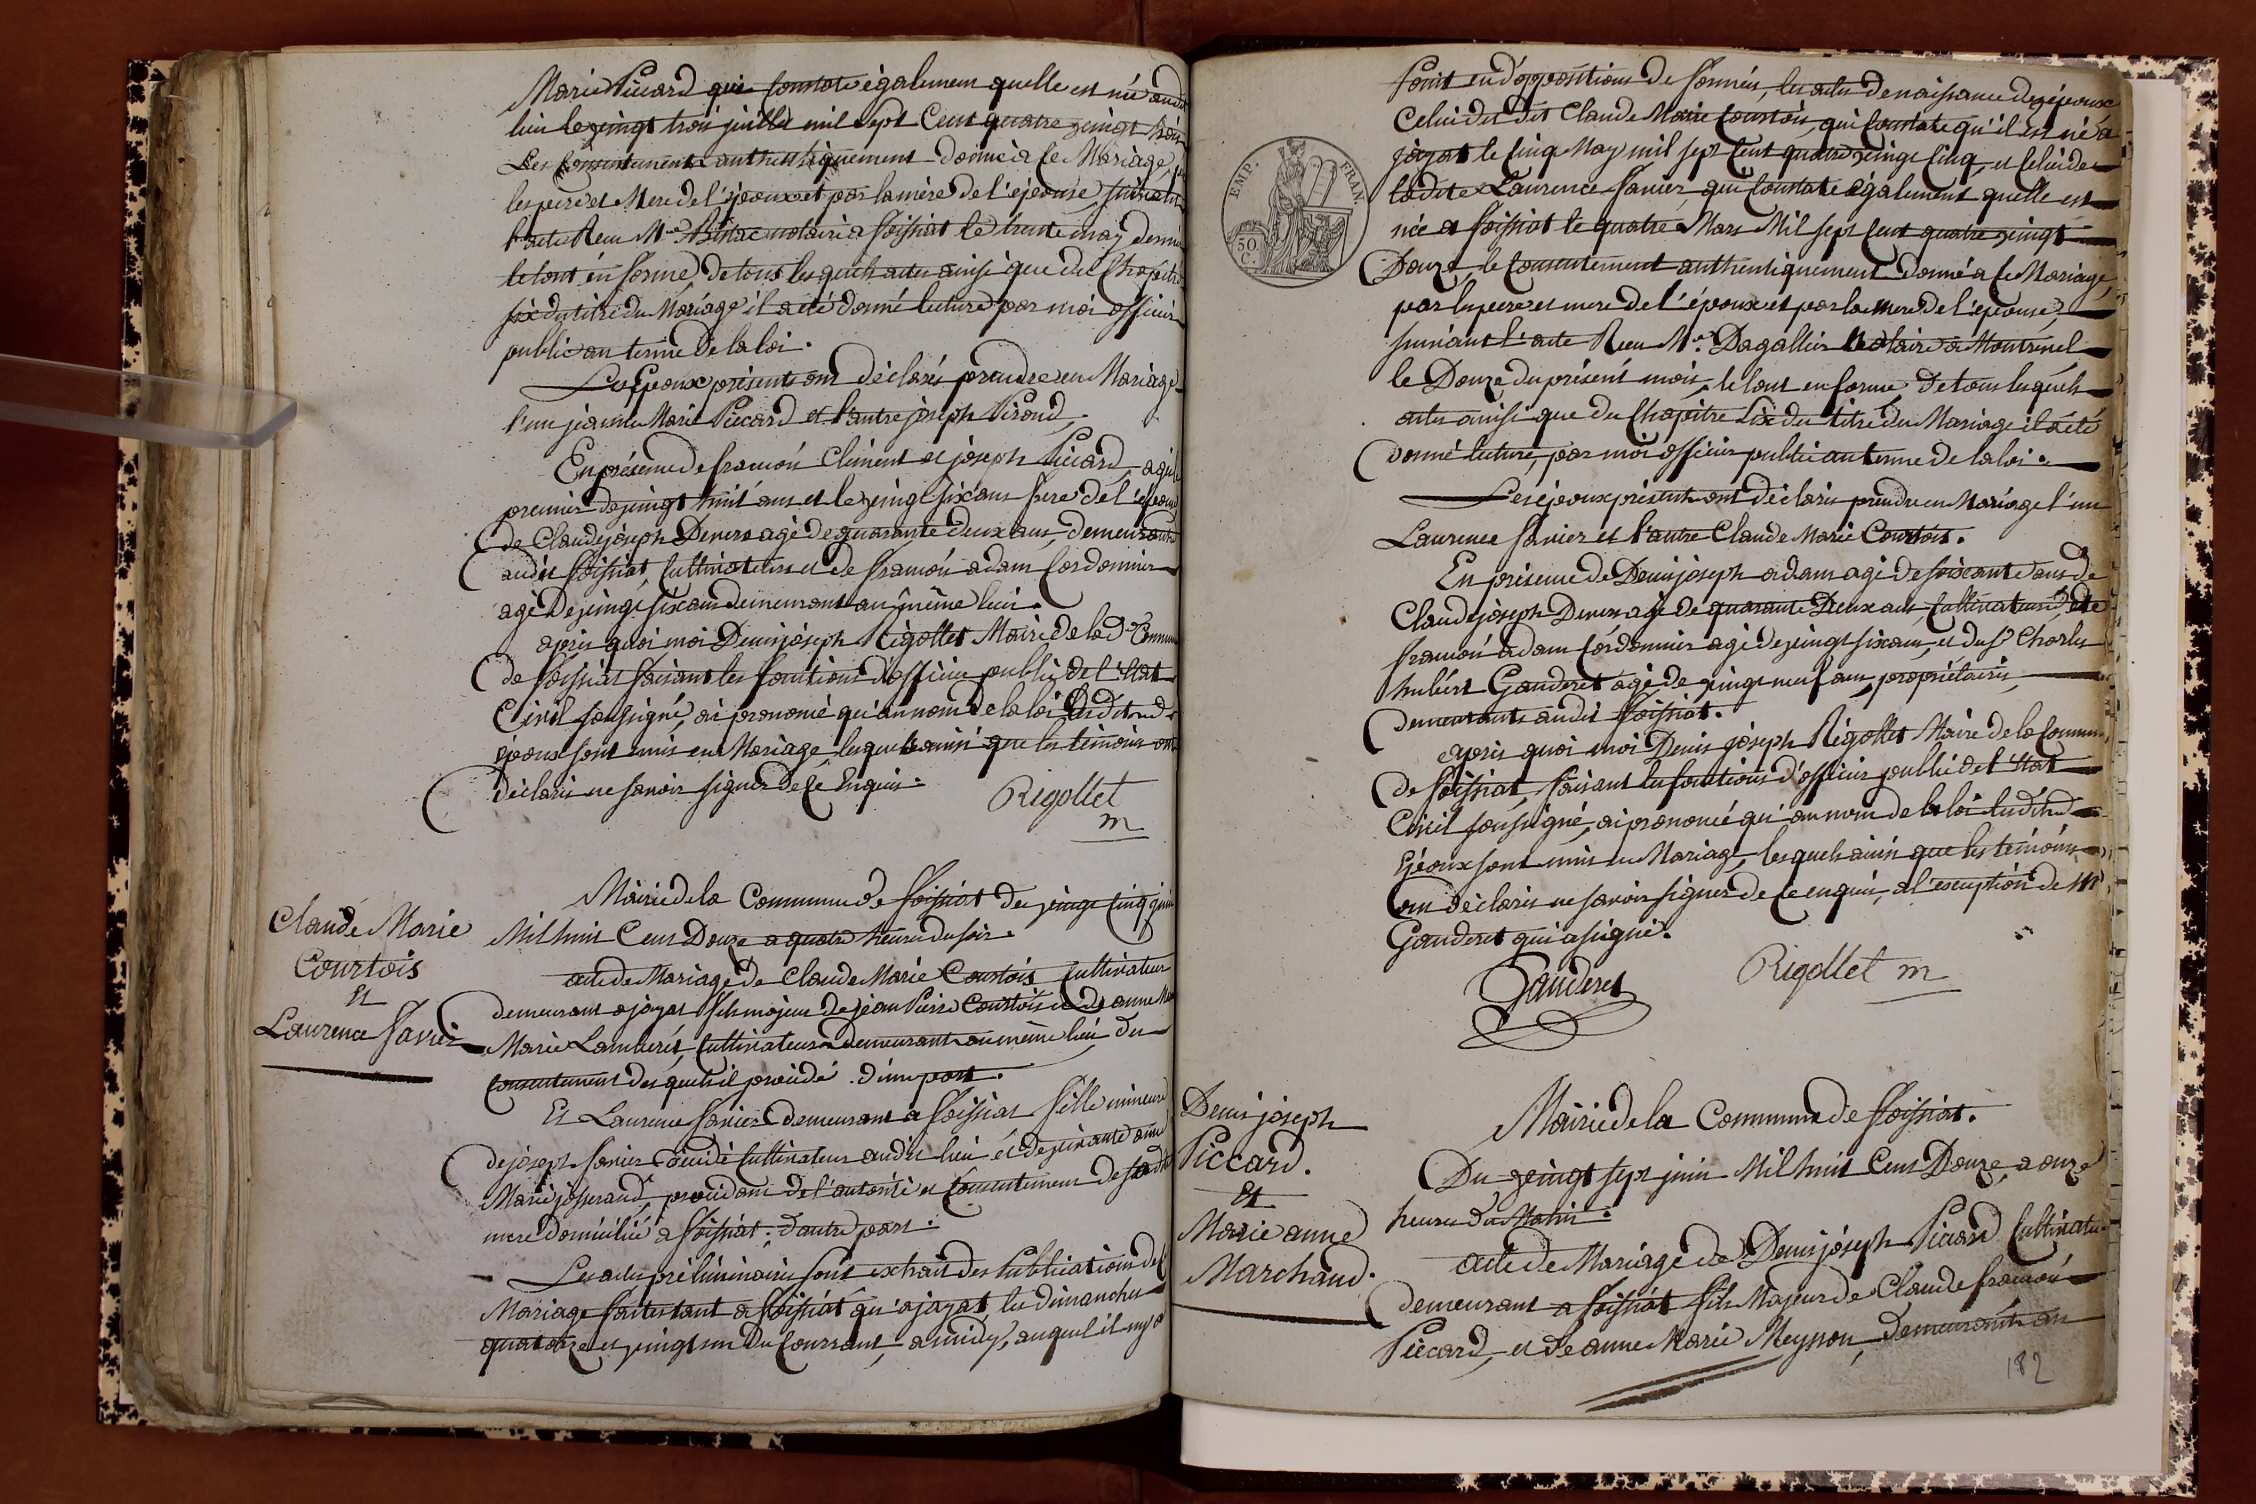 Marie Piccard qui constate également quelle est née audit
lieu le vingt trois juillet mil sept Cent quatre vingt trois
Les Consentements authentiquement donnés à ce Mariage, par
les pere et Mere de l'époux et par la mère de l'épouse, suivant
l'acte Reçu Me notaire à foissiat le trente may dernier
le tout en forme, de tous lesquels actes ainsi que du Chapitre
six du titre du Mariage il a été donné lecture par moi officier
public au terme de la loi.
Les Epoux présents ont déclarés prendre en Mariage
l'un jeanne Marie Piccard et l'autre joseph Pirond,
En présence de francois Climent et joseph Piccard, agé le
premier de vingt huit ans et le vingt six ans frere de l'épouse
de Claude joseph Devers agé de quarante deux ans, demeurants
audit foissiat, Cultivateurs et de francois adam Cordonnier
agé de vingt six ans demeurant au même lieu.
après quoi moi Denis joseph Rigollet Maire de lad. Commune
de foissiat faisant les fonctions d'officier public de l'Etat
Civil soussigné, ai prononcé qu'au nom de la loi lesdits
époux sont unis en Mariage, lesquels ainsi que les témoins ont
déclarés ne savoir signer de ce Enquis.
Rigollet
m
Claude Marie
Courtois
Et
Laurence favier
Mairie de la Commune de foissiat du vingt cinq juin
Mil huit Cent Douze a quatre heure du soir.
acte de Mariage de Claude Marie Courtois Cultivateur
demeurant a jayat fils majeur de jean Pierre Courtois et de anne
Marie Lamberet, Cultivateurs demeurant au même lieu du
Consentement desquels il procède d'une part.
Et Laurence favier demeurant a foissiat fille mineure
de joseph favier décédé Cultivateur audit lieu et de vivante anne
Marie josserand, procédant de l'autorité et Consentement de sadite
mere domiciliée a foissiat; d'autre part.
Les actes préliminaires sont extrait des Publications de
Mariage faites tant a foissiat qu'a jayat les dimanches
quatorze et vingt un du Courrant, a midy, auquel il ny a
EMP. FRAN.
50.
C.
point eu d'oppositions de formées, les actes de naissance des époux
Celui du dit Claude Marie Courtois, qui Constate qu'il est né a
jayat le Cinq May mil sept Cent quatre vingt Cinq, et celui de
ladite Laurence favier, qui Constate également quelle est
née a foissiat le quatre Mars Mil sept Cent quatre vingt
Douze, le Consentement authentiquement donné a ce Mariage,
par les pere et mere de l'époux et par la mere de l'épouse,
suivant l'acte Reçu Me. Dagallier Notaire a Montrevel
le Douze du présent mois, le tout en forme, de tous lesquels
actes ainsi que du Chapitre Six du titre du Mariage il a été
donné lecture, par moi officier public au terme de la loi.
Les époux présents ont déclarés prendre en Mariage l'un
Laurence favier et l'autre Claude Marie Courtois.
En présence de Denis joseph adam agé de soixante ans de
Claude joseph Devers agé de quarante Deux ans, Cultivateurs, et de
francois adam Cordonnier agé de vingt six ans, et du Sr Charles
hubert Gauderet agé de vingt neuf ans, propriétaire,
demeurants audit foissiat.
après quoi moi Denis joseph Rigollet Maire de la Commune
de foissiat faisant les fonctions d'officier public de l'Etat
Civil soussigné, ai prononcé qu'au nom de la loi lesdits
Epoux sont unis en Mariage, lesquels ainsi que les témoins
ont déclarés ne savoir signer de ce enquis, a l'exception de Mr
Gauderet qui a signé.
Gauderet
Rigollet m
Denis joseph
Piccard.
Et
Marie anne
Marchand.
Mairie de la Commune de foissiat.
Du vingt sept juin Mil huit Cent Douze, a onze
heures du Matin.
acte de Mariage de Denis joseph Piccard Cultivateur
demeurant a foissiat fils Majeur de Claude francois
Piccard, et de anne Marie Meynon, demeurants au
182